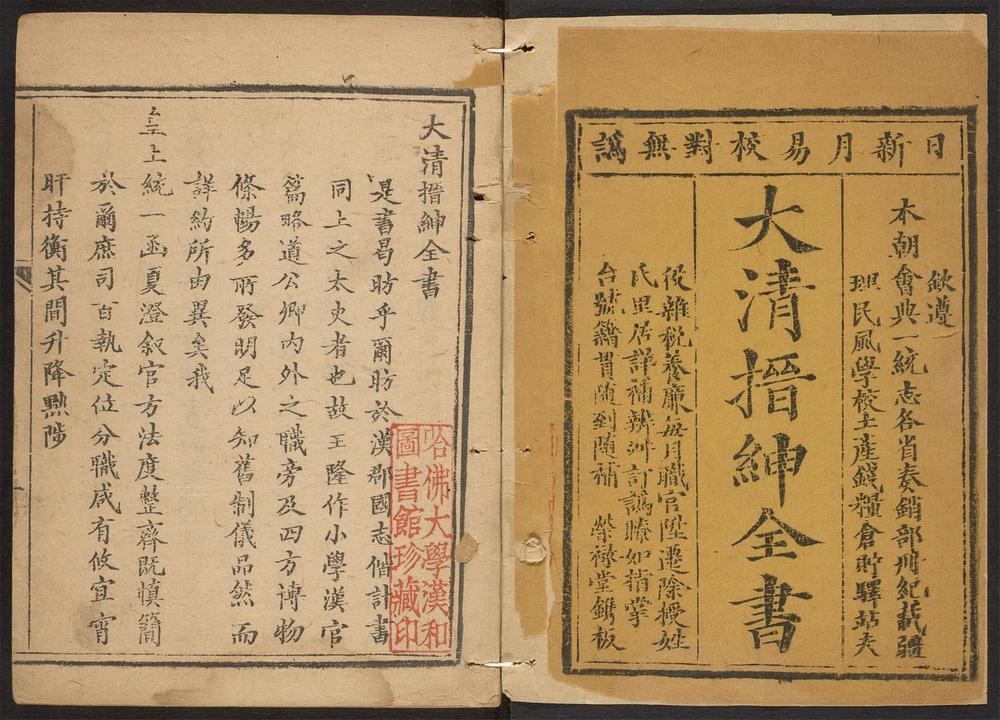 日新月易校對無譌
欽遵
本朝會典一統志各省奏銷部册紀載疆
理民風學校土產錢糧倉貯驛站夫
大清搢紳全書
役雜稅養廉每月職官陞遷除授姓
氏里居詳補辨舛訂譌瞭如指掌
台號籍貫隨到隨補 榮祿堂鐫板
大清搢紳全書
是書曷昉乎爾昉於漢郡國志偕計書
同上之太史者也故王隆作小學漢官
篇略道公卿內外之職旁及四方博物
條暢多所發明足以知舊制儀品然而
詳約所由異矣我
皇上統一函夏澄叙官方法度整齊既慎簡
於爾庶司百執定位分職咸有攸宜宵
旰持衡其間升降黜陟
哈佛大學漢和
圖書館珍藏印